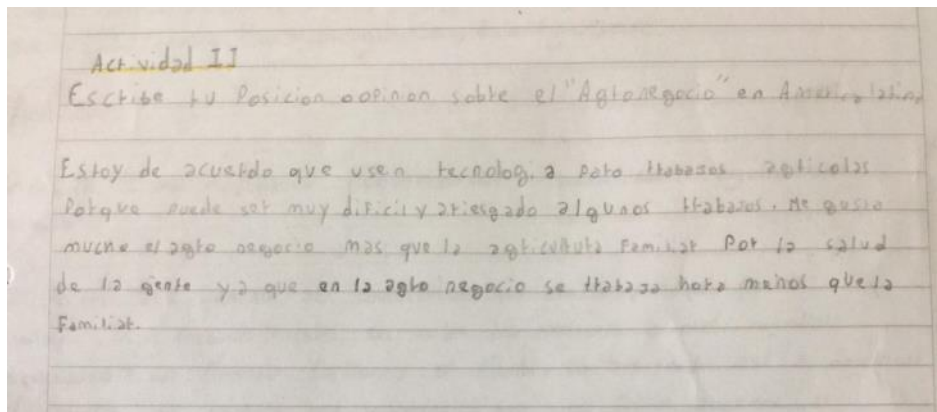 Actividad II
Escribe tu Posicion o opinion sobre el "Agronegocio" en America latina
Estoy de acuerdo que usen tecnologia para trabajos agricolas
Porque puede ser muy dificil y arriesgado algunos trabajos. Me gusta
mucho el agro negocio mas que la agricultura Familiar Por la salud
de la gente ya que en la agro negocio se trabaja hora menos que la
Familiar.